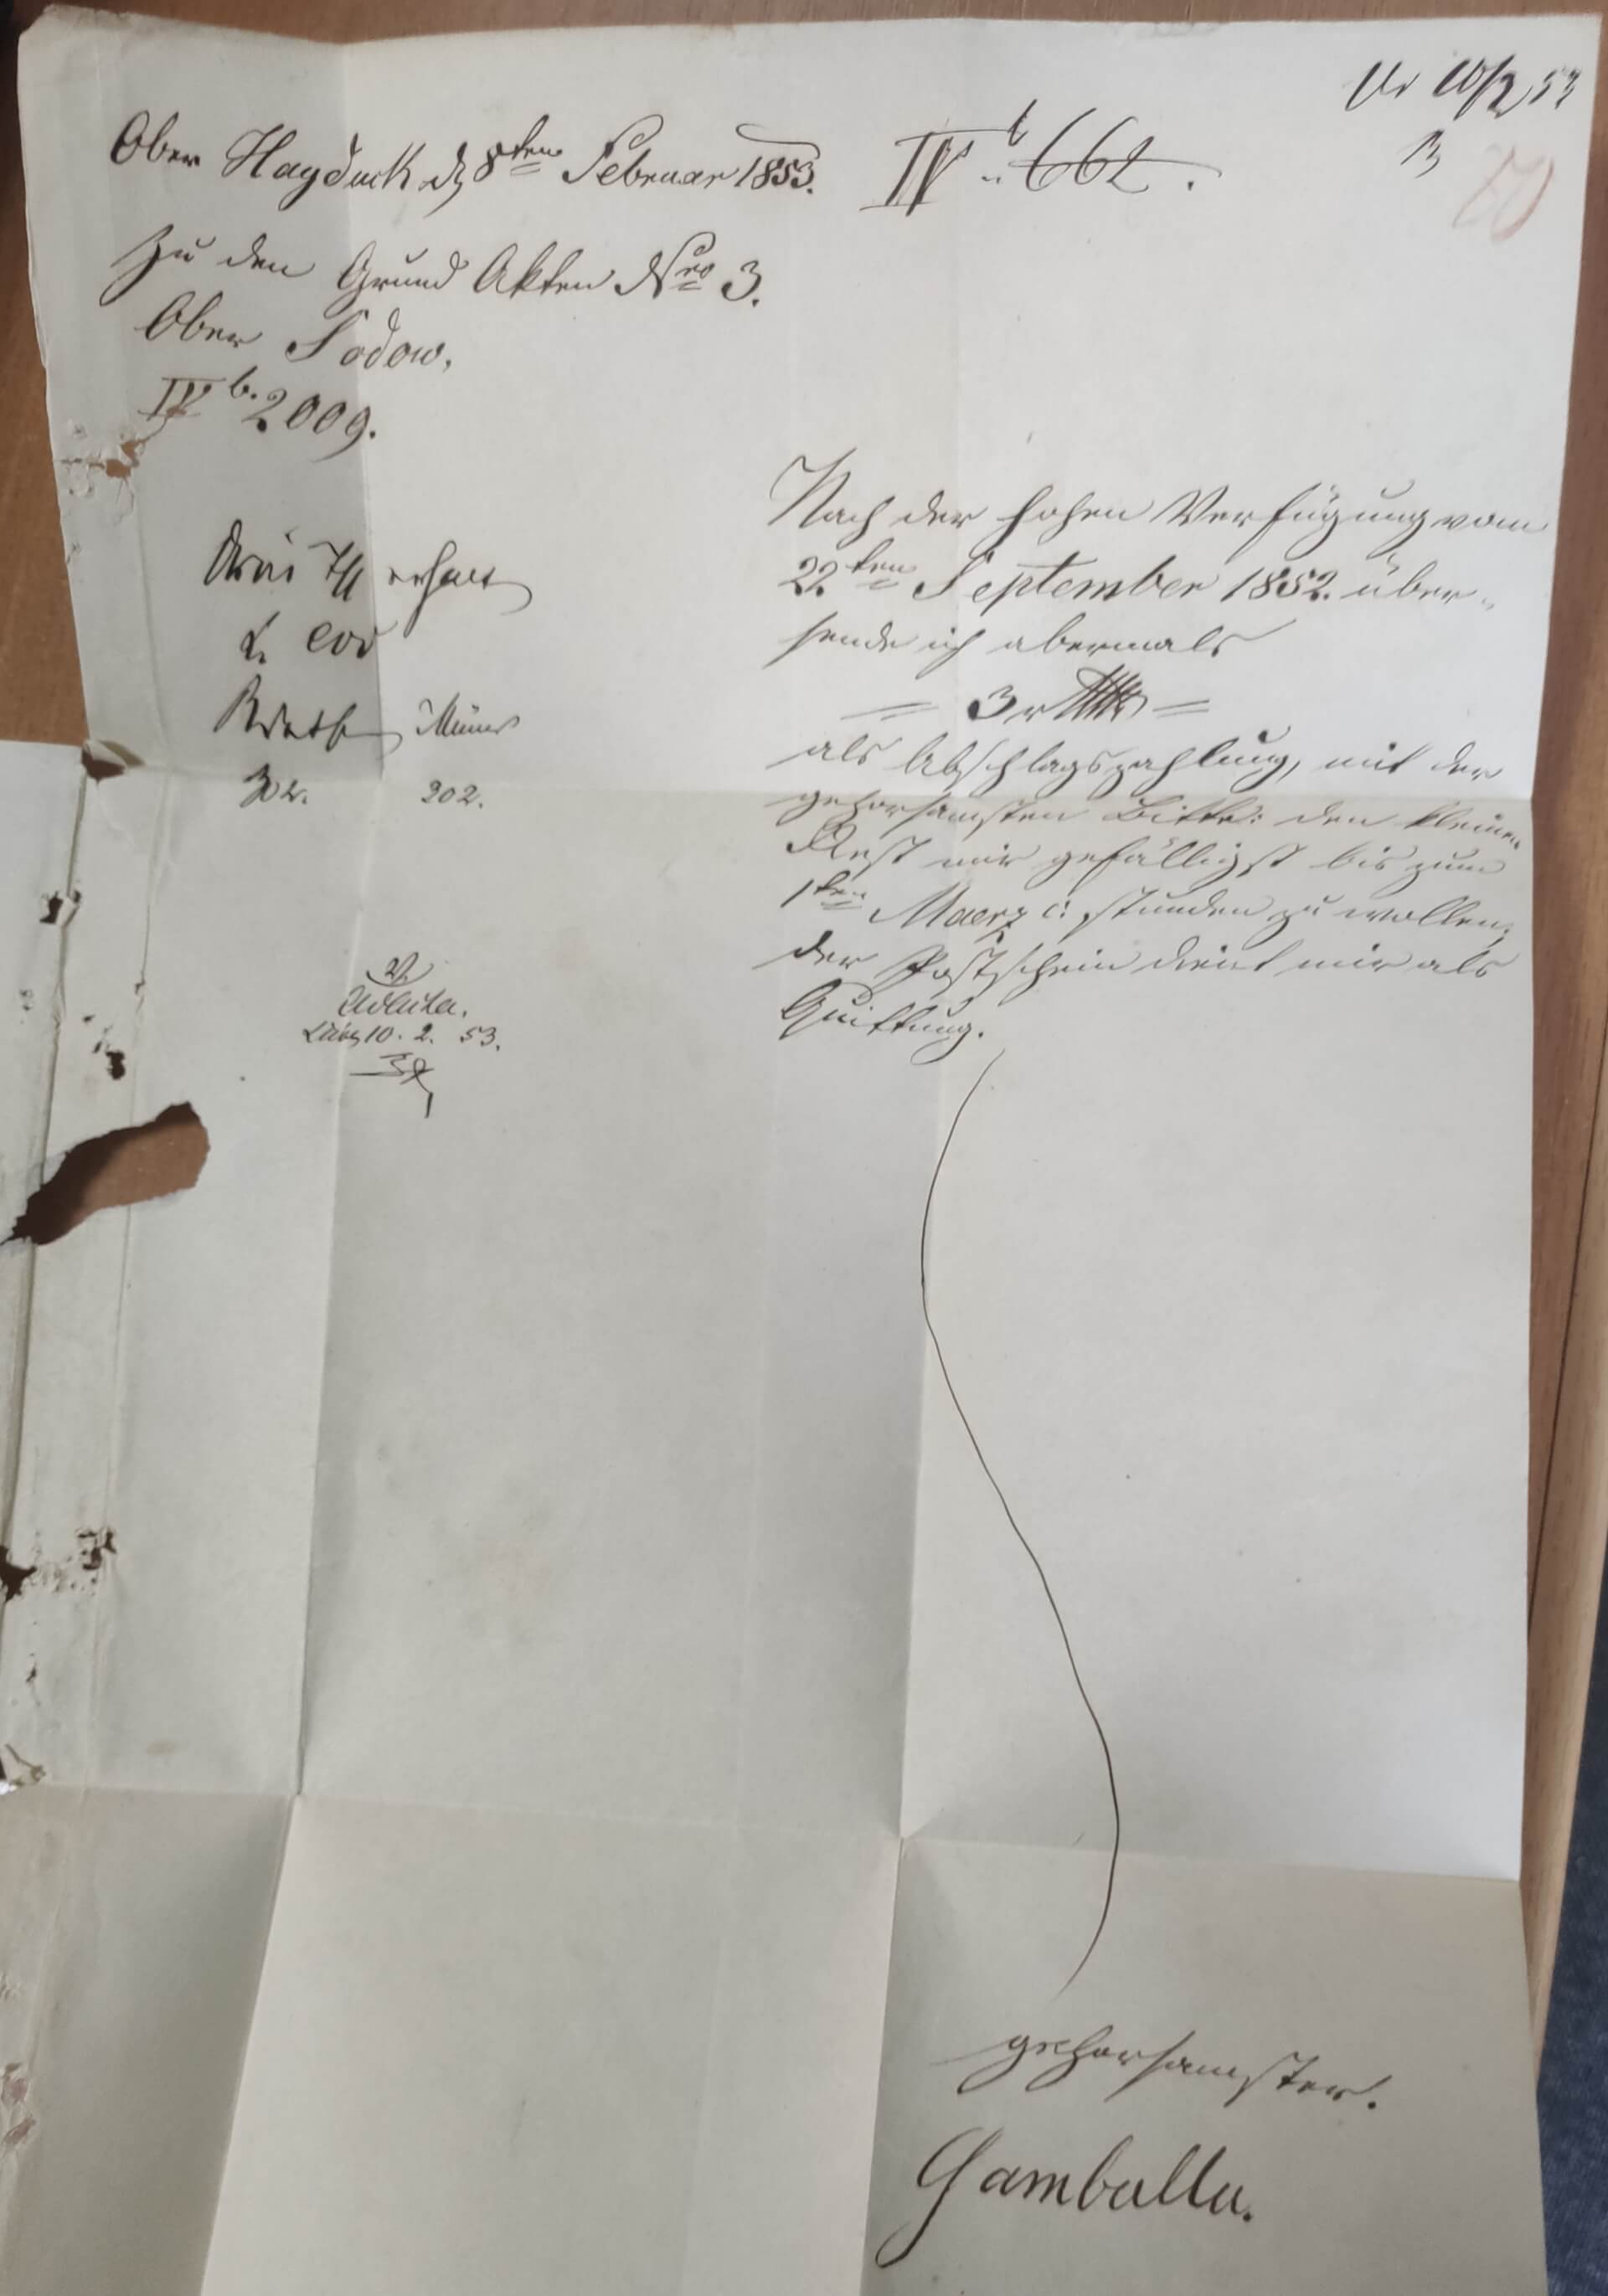 Ober Hayduck d 8ten Februar 1853.
IV b 662.
10/2 53
Zu den Grund Akten Nro 3.
Ober Sodow.
IV b. 2009.
Nach der hohen Verfügung vom
22ten September 1852. über-
sende ich abermals
= 3 r =
als Abschlagszahlung, mit der
gehorsamsten Bitte: den kleinen
Rest mir gefälligst bis zum
1ten Maerz c: stunden zu wollen;
der Postschein dient mir als
Quittung.
erhalt
302. 202.
10. 2. 53.
gehorsamster.
Gamballa.